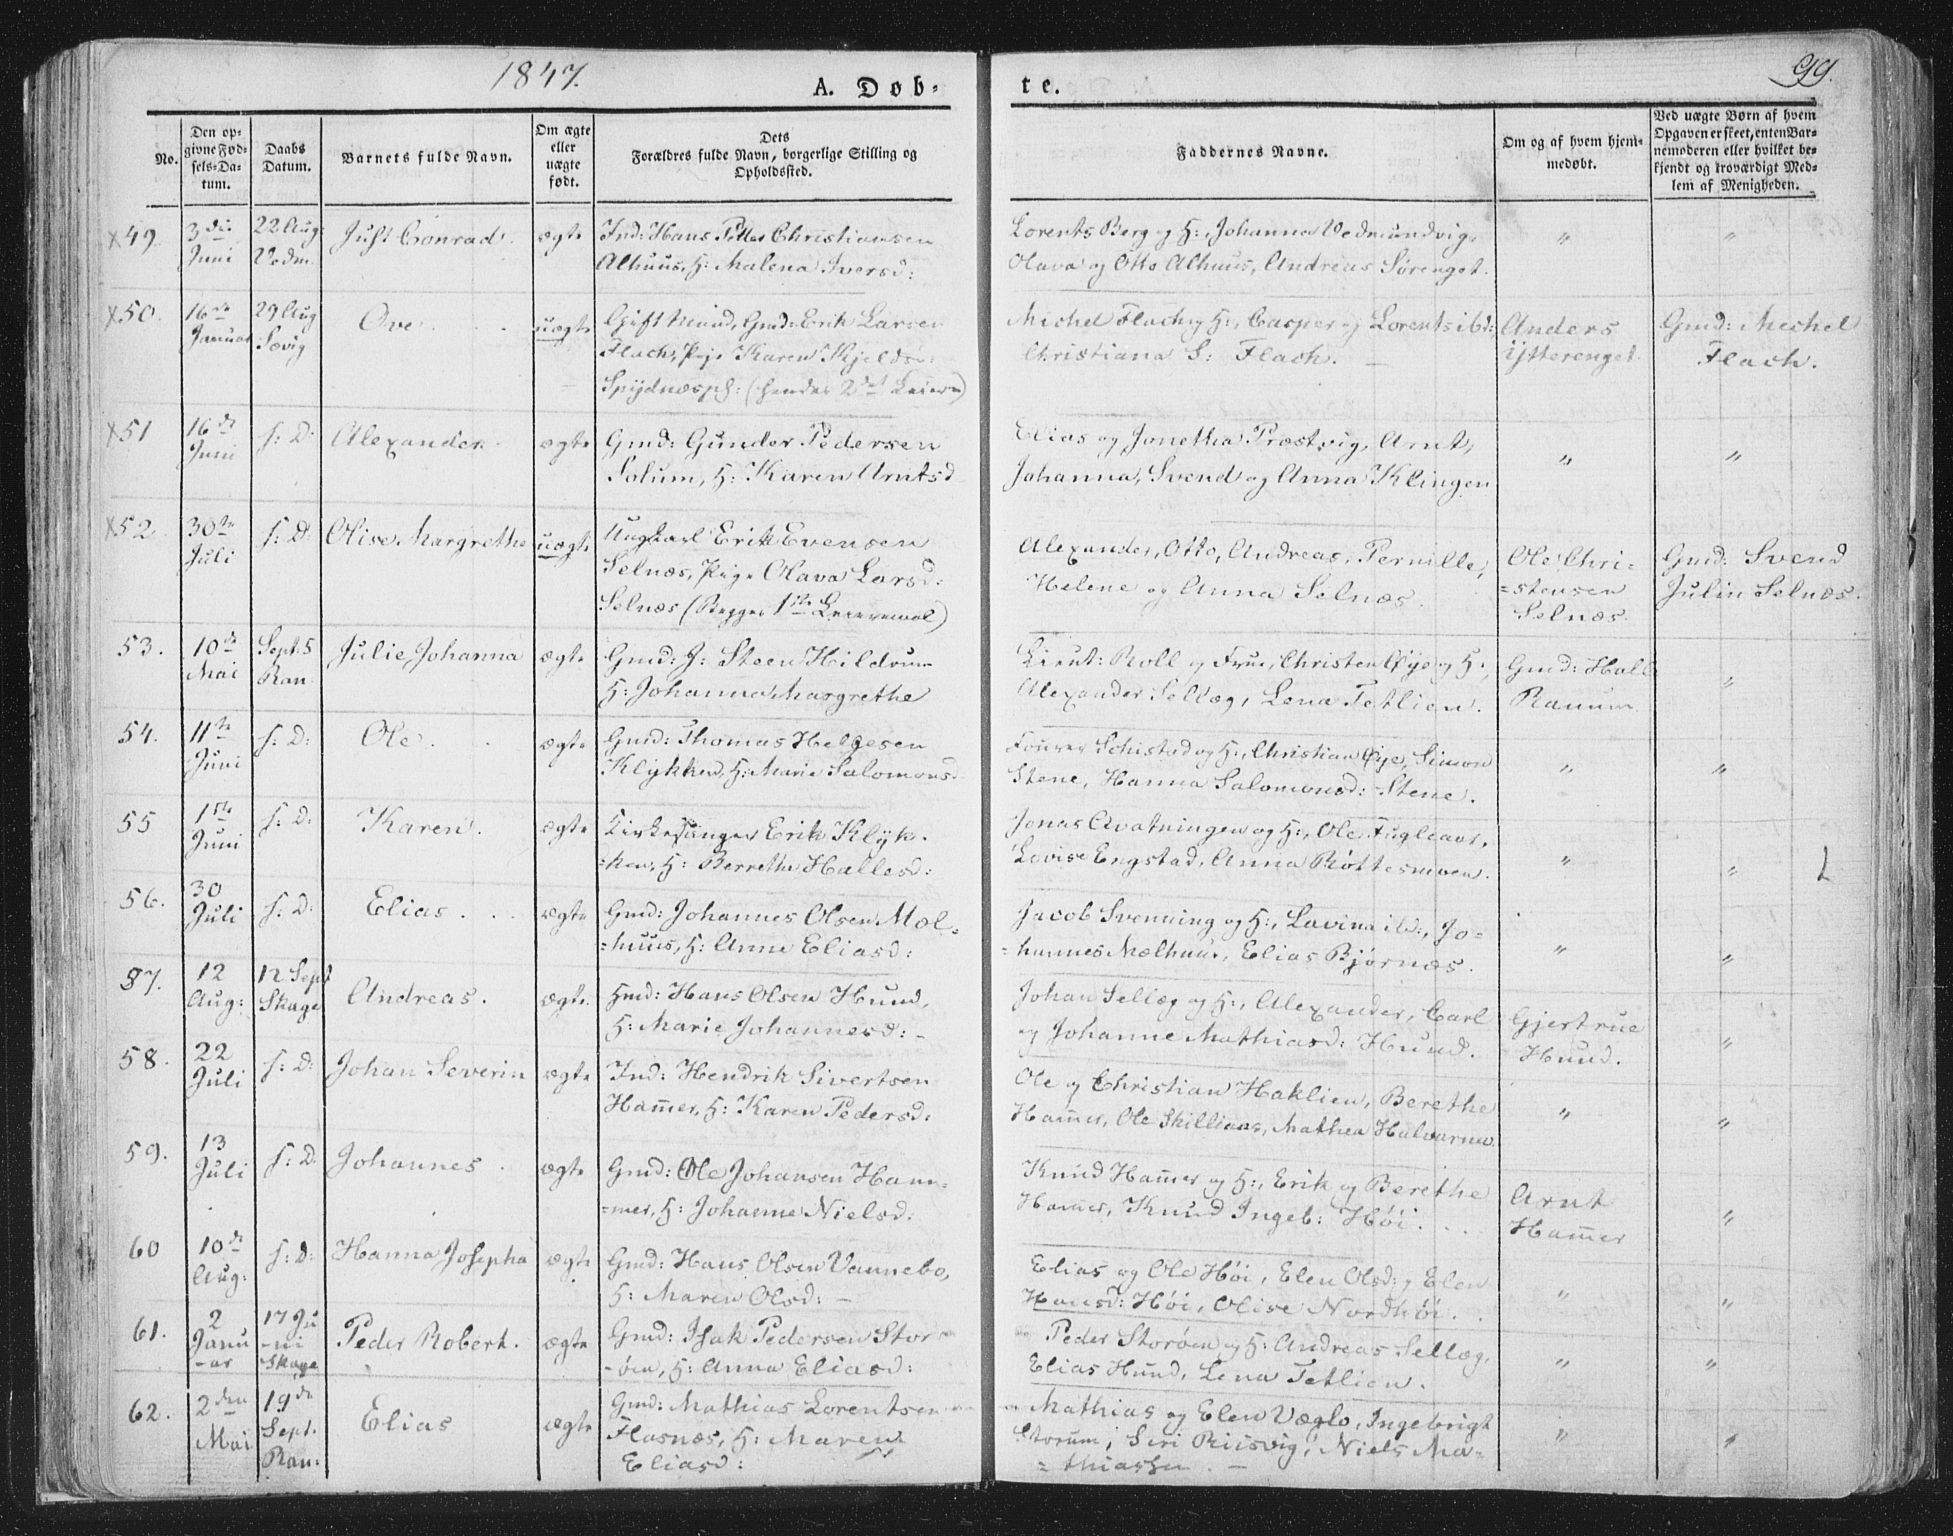 1847.
A. Døb-
te.
99.
No.
Den op-
givne Fød-
sels-Da-
tum.
Daabs
Datum.
Barnets fulde Navn.
Om ægte
eller
uægte
født.
Dets
Forældres fulde Navn, borgerlige Stilling og
Opholdssted.
Faddernes Navne.
Om og af hvem hjem-
medøbt.
Ved uægte Børn af hvem
Opgaven er skeet, enten Bar-
nemoderen eller hvilket be-
kjendt og troværdigt Med-
lem af Menigheden.
x49. 3die Juni 22 Aug: Vedm. Just Conrad. ægte
Ind: Hans Petter Christiansen
Alhuus, H: Malena Iversd:
Lorents Berg og H:, Johanna Vedmundvig,
Olava og Otto Alhuus, Andreas Sørenget. " "
x50. 16de Januar 29 Aug Sævig Ove. uægte
Gift Mand, Gmd: Erik Larsen
Flach, Pige Karen Kjeldsd:
Spydnæsph: (hendes 2det Leierm)
Michel Flach og H:, Casper og Lorents ibd:
Christiana S: Flach.
Anders
Ytterenget.
Gmd: Michel
Flach.
x51 16de Juni s: D: Alexander. ægte
Gmd: Gunder Pedersen
Solum, H: Karen Arntsd
Elias og Jonetha Præstvig, Arnt,
Johanna, Svend og Anna Klingen " "
x52. 30te Juli s: D: Olise Margrethe uægte
Ungkarl Erik Evensen
Selnæs, Pige Olava Larsd:
Selnæs (Begges 1ste Leiermaal)
Alexander, Otto, Andreas, Pernille,
Helene og Anna Selnæs.
Ole Chri-
=stensen
Selnæs.
Gmd: Svend
Julin Selnæs.
53. 10de Mai Sept. 5 Ran. Julie Johanna ægte
Gmd: J: Steen Hildrum
H: Johanna Margrethe
Lieut: Roll og Frue, Christen Øye og H:,
Alexander Sellæg, Lena Tetlien.
Gmd: Hall
Ranum "
54. 11te Juni s: D: Ole. ægte
Gmd: Thomas Helgesen
Klykken, H: Marie Salomonsd.
Fourer Schistad og H:, Christian Øye, Simon
Stene, Hanna Salomonsd: Stene. " "
55 1ste Juni s: D: Karen. ægte
Kirkesanger Erik Klyk-
=ken, H: Berretha Hallesd:
Jonas Avatningen og H:, Ole Fugleaas,
Lovise Engstad, Anna Røttesmoen. " "
56. 30 Juli s: D: Elias. ægte
Gmd: Johannes Olsen Mæl-
=huus, H: Anne Eliasd:
Jacob Svenning og H:, Lavina ibd:, Jo-
=hannes Mælhuus, Elias Bjørnæs. " "
57. 12 Aug: 12 Sept Skage Andreas. ægte.
Hmd: Hans Olsen Hund,
H: Marie Johannesd:
Johan Sellæg og H:, Alexander, Carl
og Johanne Mathiasd: Hund.
Gjertrue
Hund. "
58. 22 Juli s: D: Johan Severin ægte
Ind: Hendrik Sivertsen
Hamer, H: Karen Pedersd:
Ole og Christian Haklien, Berethe
Hamer, Ole Skilliaas, Mathea Halvarmo. " "
59. 13 Juli s: D. Johannes. ægte
Gmd: Ole Johansen Ham-
=mer, H: Johanne Nielsd:
Knud Hamer og H:, Erik og Berethe
Hamer, Knud Ingeb: Høi.
Arnt
Hamer "
60 10de Aug: s: D: Hanna Josepha ægte
Gmd: Hans Olsen Vannebo,
H: Maren Olsd:
Elias og Ole Høi, Elen Olsd: og Elen
Hansd: Høi, Olise Nordhøi. " "
61. 2 Janu-ar 17 Ju-ni Skage Peder Robert. ægte
Gmd: Isak Pedersen Stor-
-øen, H: Anna Eliasd:
Peder Storøen og H: Andreas Sellæg,
Elias Hund, Lena Tetlien. " "
62. 2den Mai 19de Sept. Ran: Elias ægte
Gmd: Mathias Lorentsen
Flasnæs, H: Maren
Eliasd:
Mathias og Elen Væglo, Ingebrigt
Storum, Siri Riisvig, Niels Ma-
=thiassen. " "